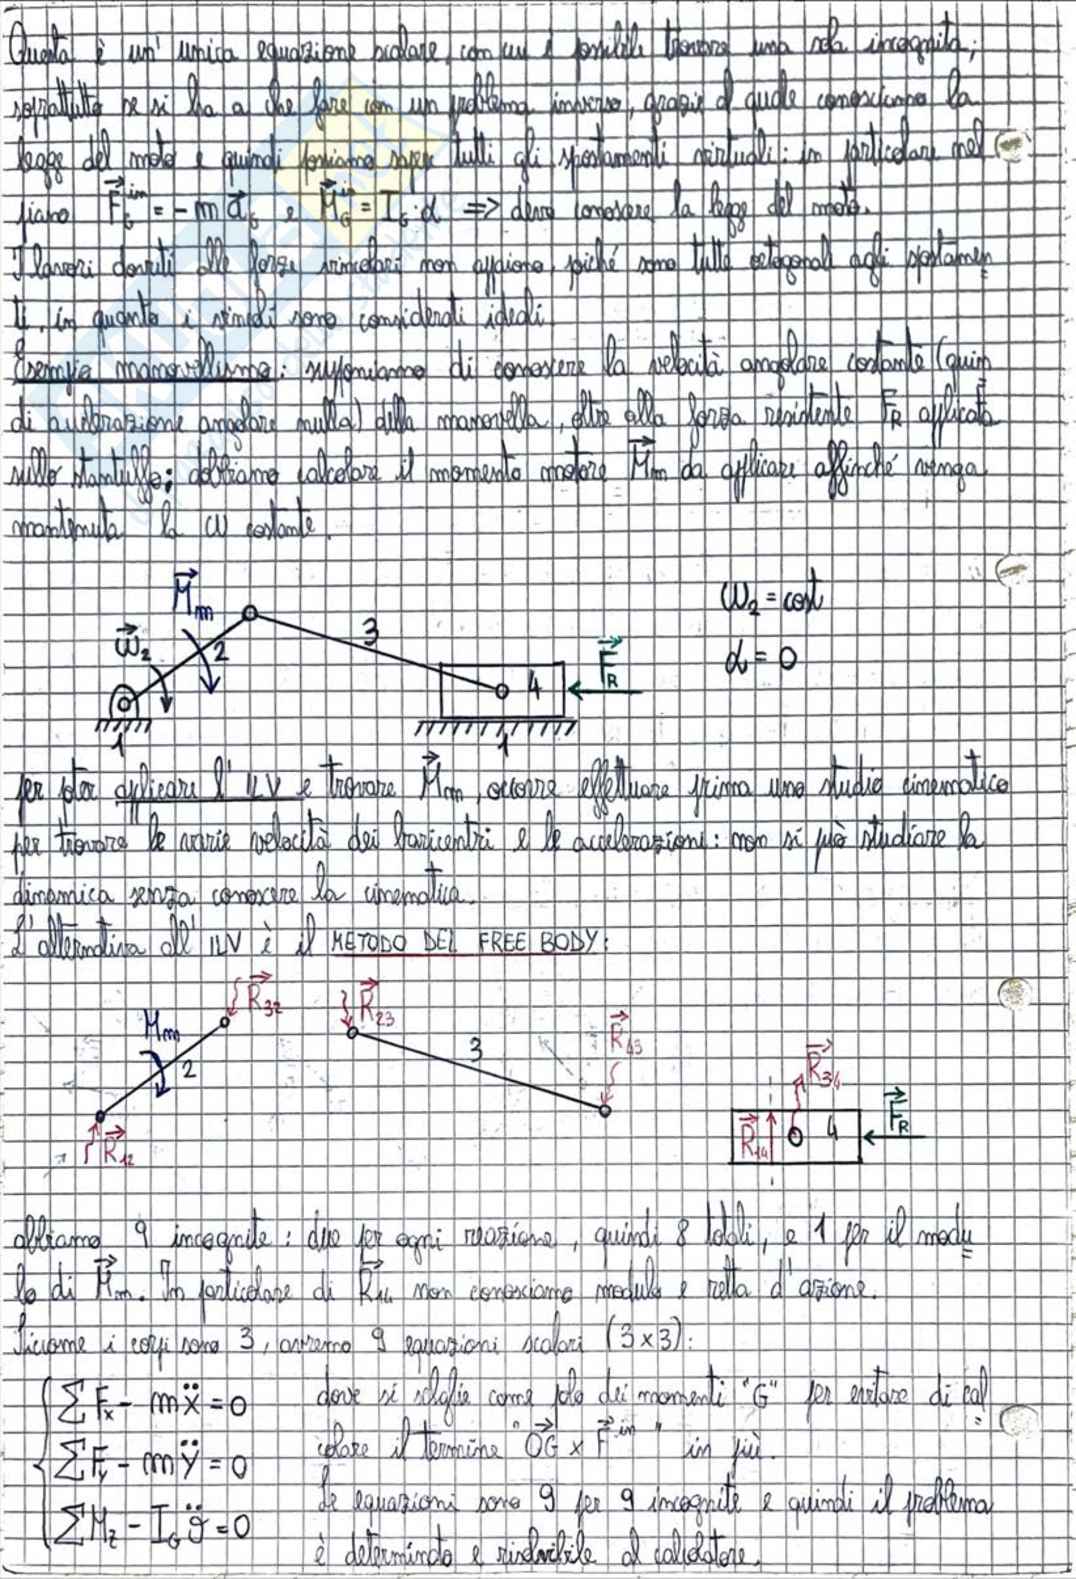 Questa è un' unica equazione scalare, con cui è possibile trovare una sola incognita;
soprattutto se si ha a che fare con un problema inverso, grazie al quale conosciamo la
legge del moto e quindi possiamo sapere tutti gli spostamenti virtuali: in particolare nel
piano F_G^in = - m a_G e M_G^in = I_G · α => devo conoscere la legge del moto.
I lavori dovuti alle forze vincolari non appaiono, poiché sono tutte ortogonali agli spostamen
ti, in quanto i vincoli sono considerati ideali.
Esempio manovellismo: supponiamo di conoscere la velocità angolare costante (quin
di accelerazione angolare nulla) della manovella, oltre alla forza resistente F_R applicata
sullo stantuffo; dobbiamo calcolare il momento motore M_m da applicare affinché venga
mantenuta la ω costante.
M_m
ω_2
2
3
4
F_R
1
1
ω_2 = cost
α = 0
per poter applicare l' ILV e trovare M_m, occorre effettuare prima uno studio cinematico
per trovare le varie velocità dei baricentri e le accelerazioni: non si può studiare la
dinamica senza conoscere la cinematica.
L'alternativa all' ILV è il METODO DEL FREE BODY:
M_m
2
R_32
R_12
R_23
3
R_43
R_34
R_14
4
F_R
abbiamo 9 incognite: due per ogni reazione, quindi 8 totali, e 1 per il modu
lo di M_m. In particolare di R_14 non conosciamo modulo e retta d'azione.
Siccome i corpi sono 3, avremo 9 equazioni scalari (3x3):
∑F_x - mẍ = 0
∑F_y - mÿ = 0
∑M_z - I_G ϑ̈ = 0
dove si sceglie come polo dei momenti "G" per evitare di cal
colare il termine "OG x F^in" in più.
Le equazioni sono 9 per 9 incognite e quindi il problema
è determinato e risolvibile al calcolatore.